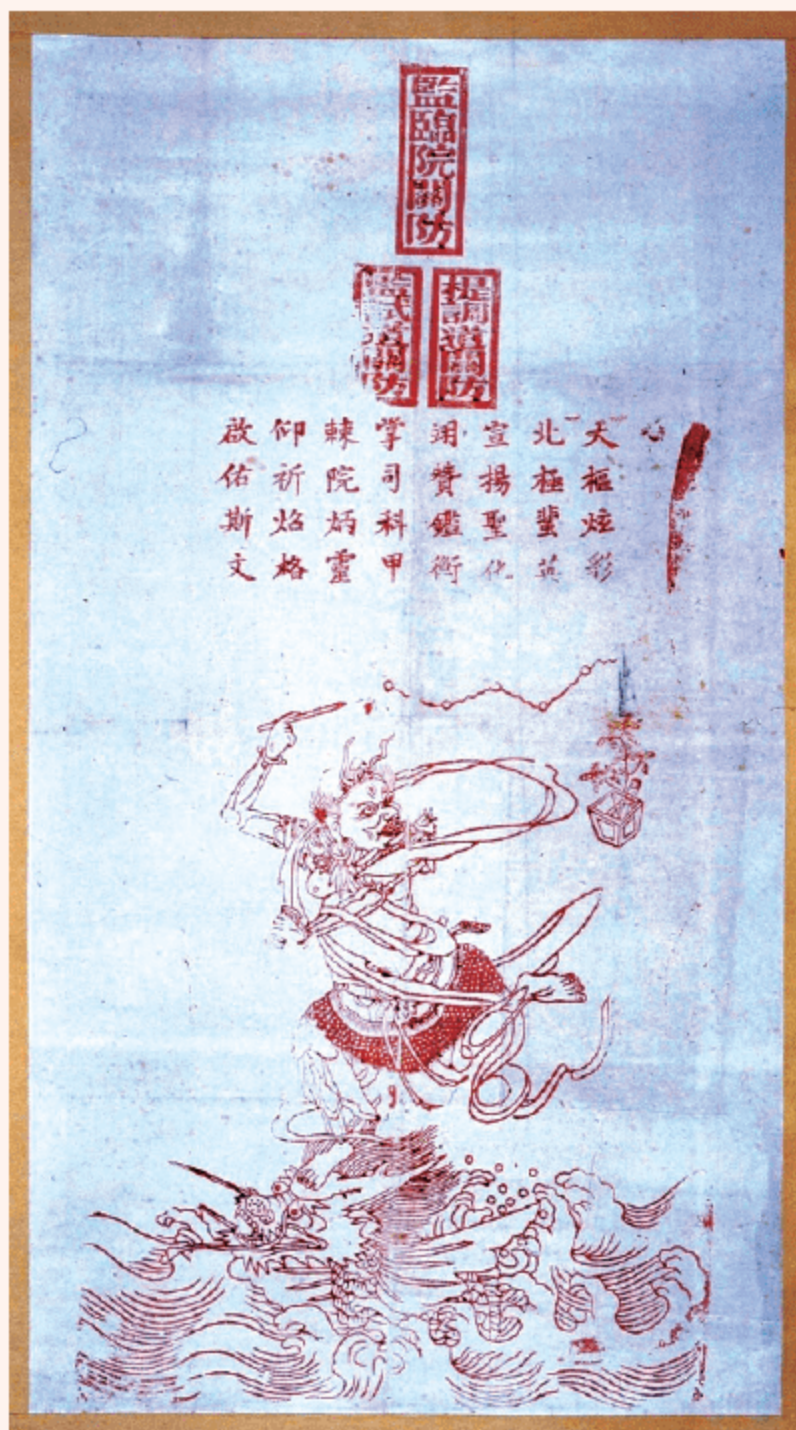 監臨院關防
提調道關防
監試道關防
天樞炫彩
北極蜚英
宣揚聖化
翊贊鑑衡
掌司科甲
棘院炳靈
仰祈炤格
啟佑斯文